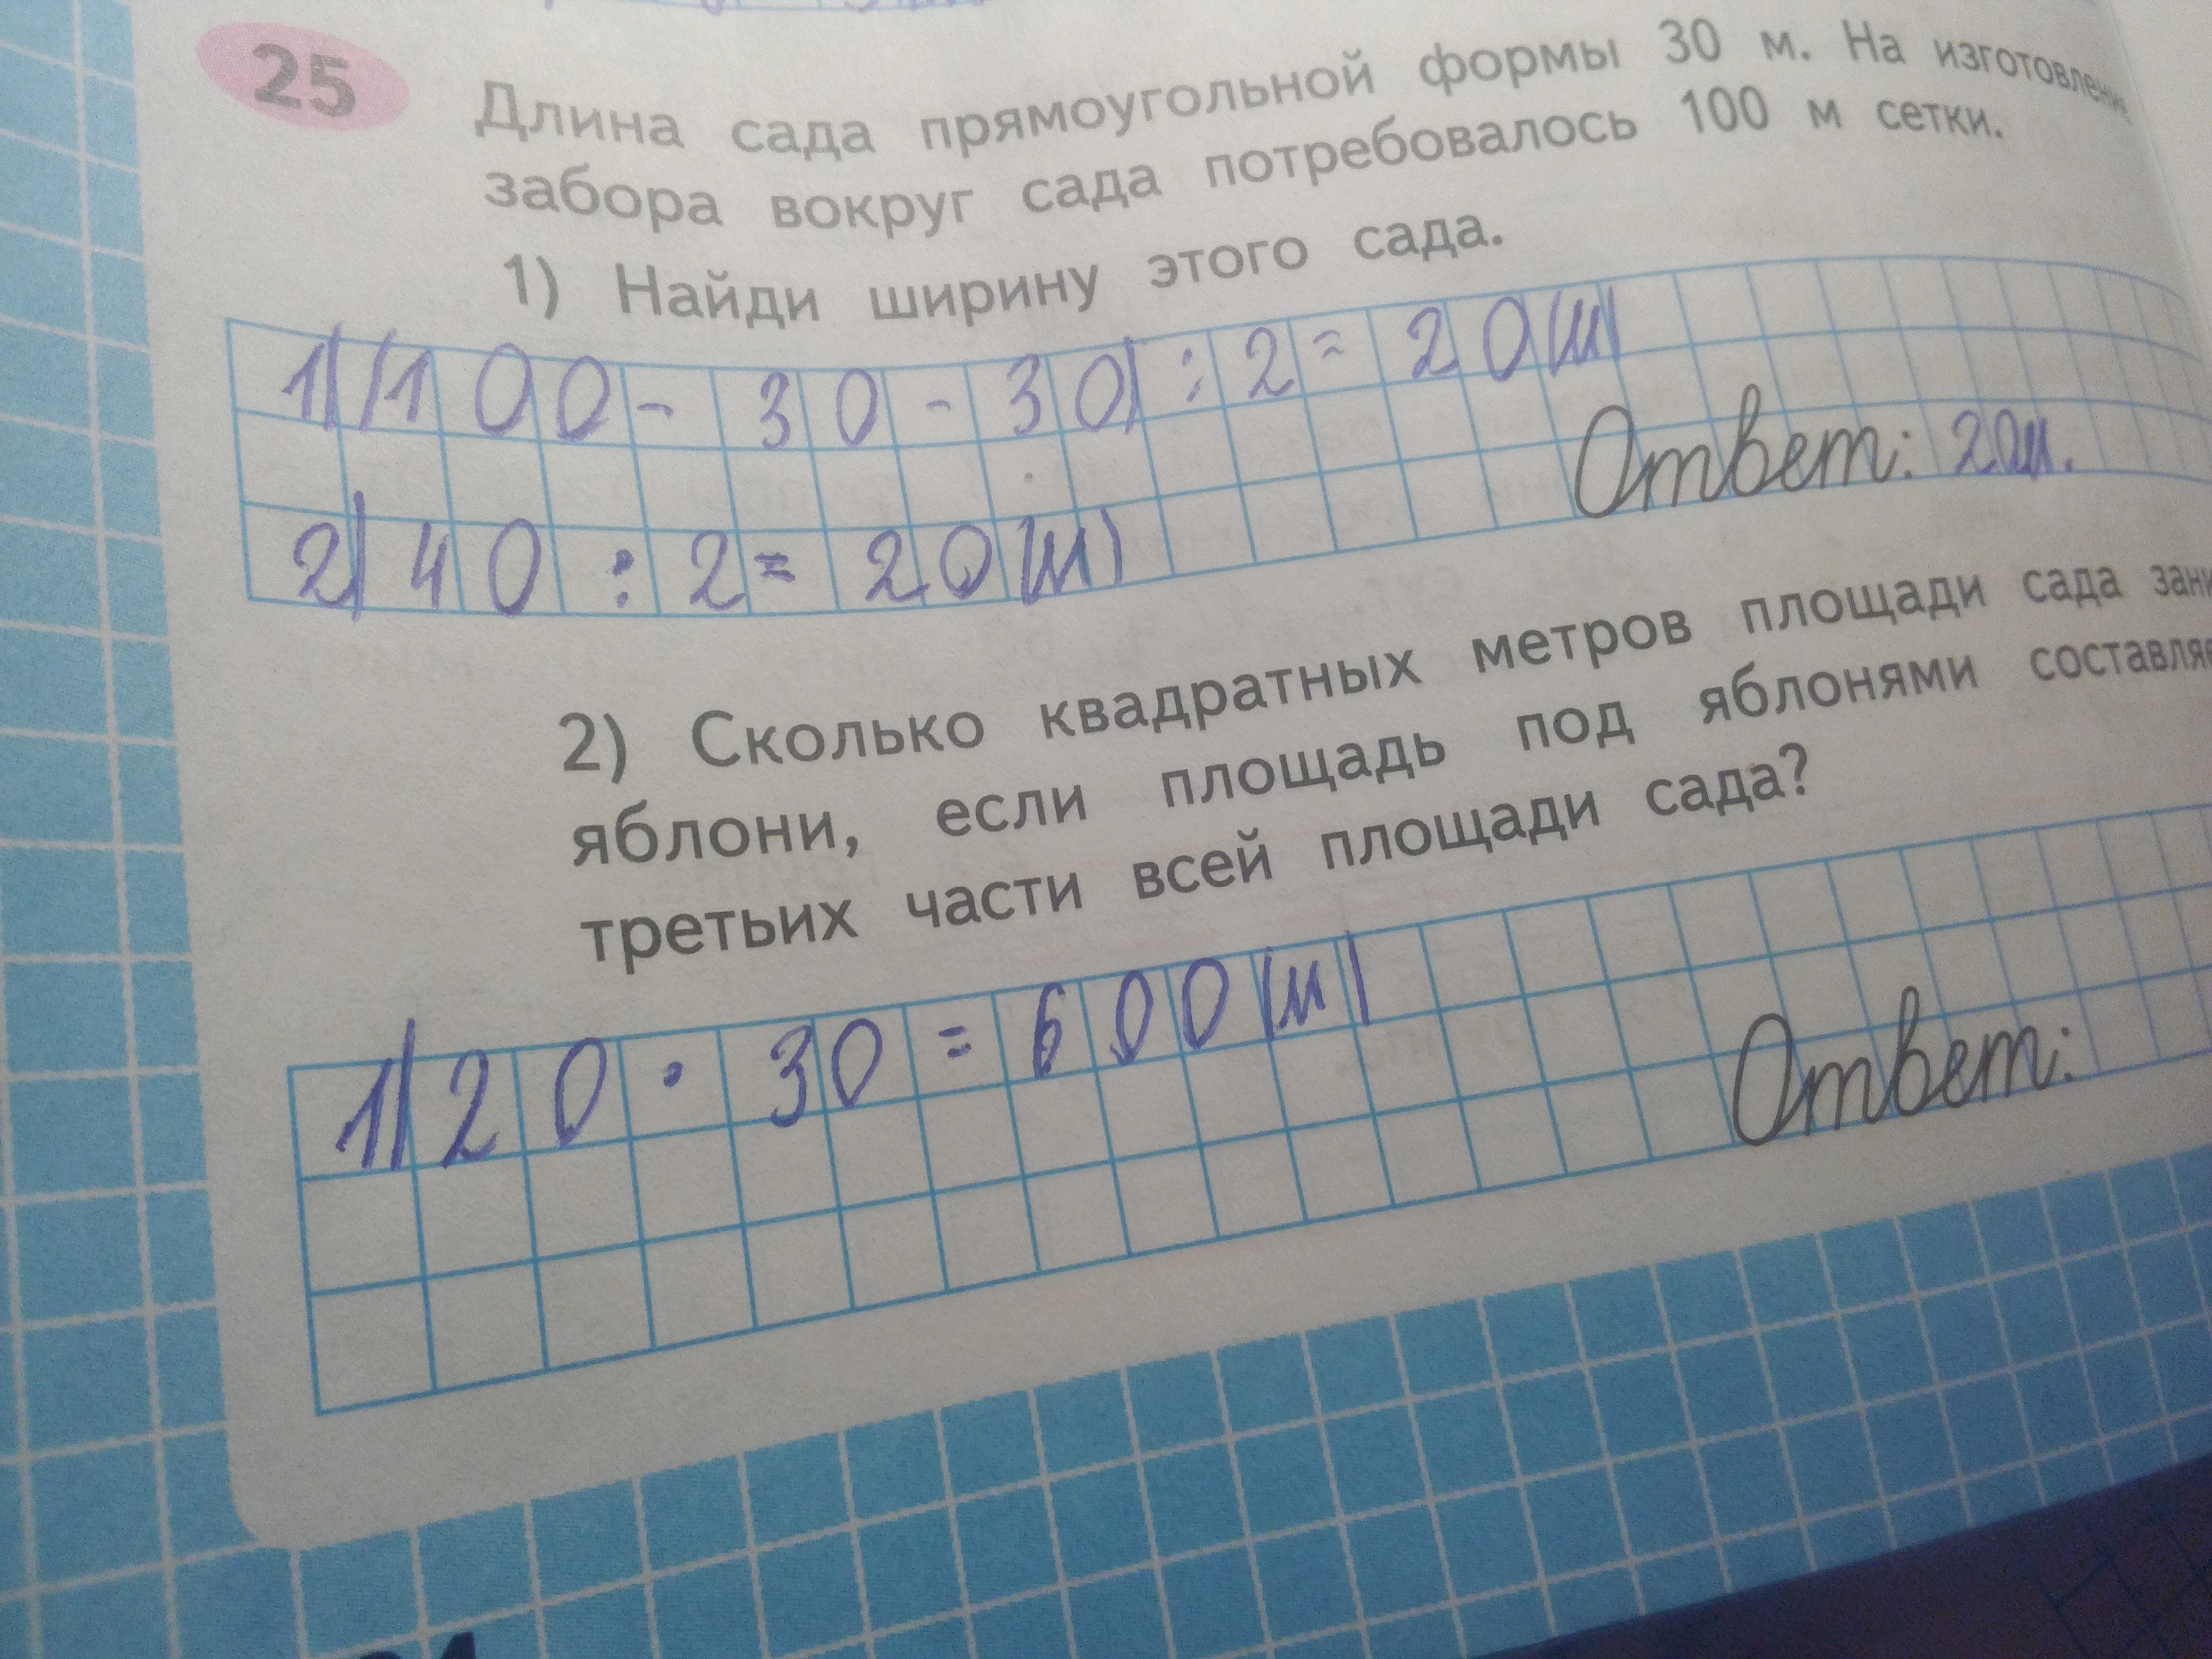 25
Длина сада прямоугольной формы 30 м. На
забора вокруг сада потребовалось 100 м сетки.
1) Найди ширину этого сада.
1) (100 - 30 - 30) : 2 = 20 (м)
Ответ: 20м.
2) 40 : 2 = 20 (м)
2) Сколько квадратных метров площади сада
яблони, если площадь под яблонями
третьих части всей площади сада?
1) 20 · 30 = 600 (м)
Ответ: